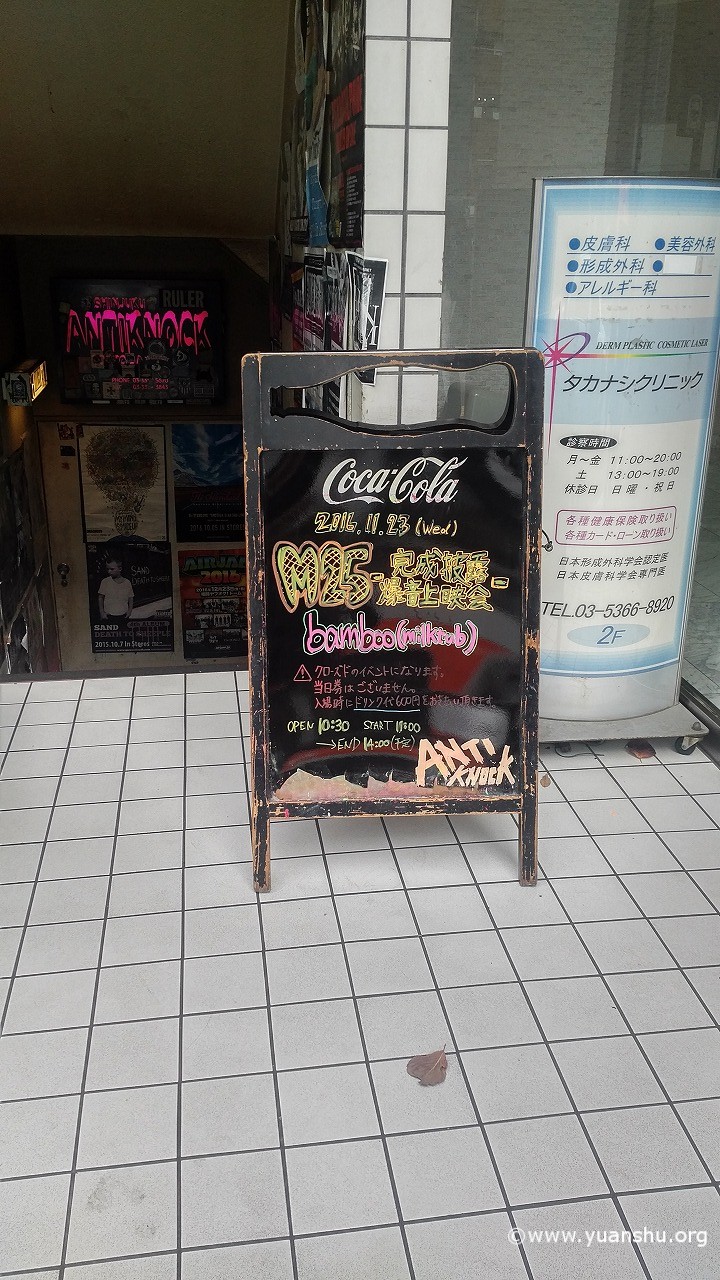 SHINJUKU
RULER
ANTIKNOCK
SAND
DEATH TO SHEEPLE
2015.10.7 In Stores
AIRJAM
Coca-Cola
2016.11.23 (Wed)
M25 -完成披露
爆音上映会-
bamboo (milktub)
クローズドのイベントになります。
当日券はございません。
入場時にドリンク代600円をお支払い頂きます。
OPEN 10:30 START 11:00
→END 14:00(予定)
ANTI
KNOCK
●皮膚科 ●美容外科
●形成外科 ●
●アレルギー科
DERM PLASTIC COSMETIC LASER
タカナシクリニック
診察時間
月~金 11:00~20:00
土 13:00~19:00
休診日 日曜・祝日
各種健康保険取り扱い
各種カード・ローン取り扱い
日本形成外科学会認定医
日本皮膚科学会専門医
TEL.03-5366-8920
2F
©www.yuanshu.org